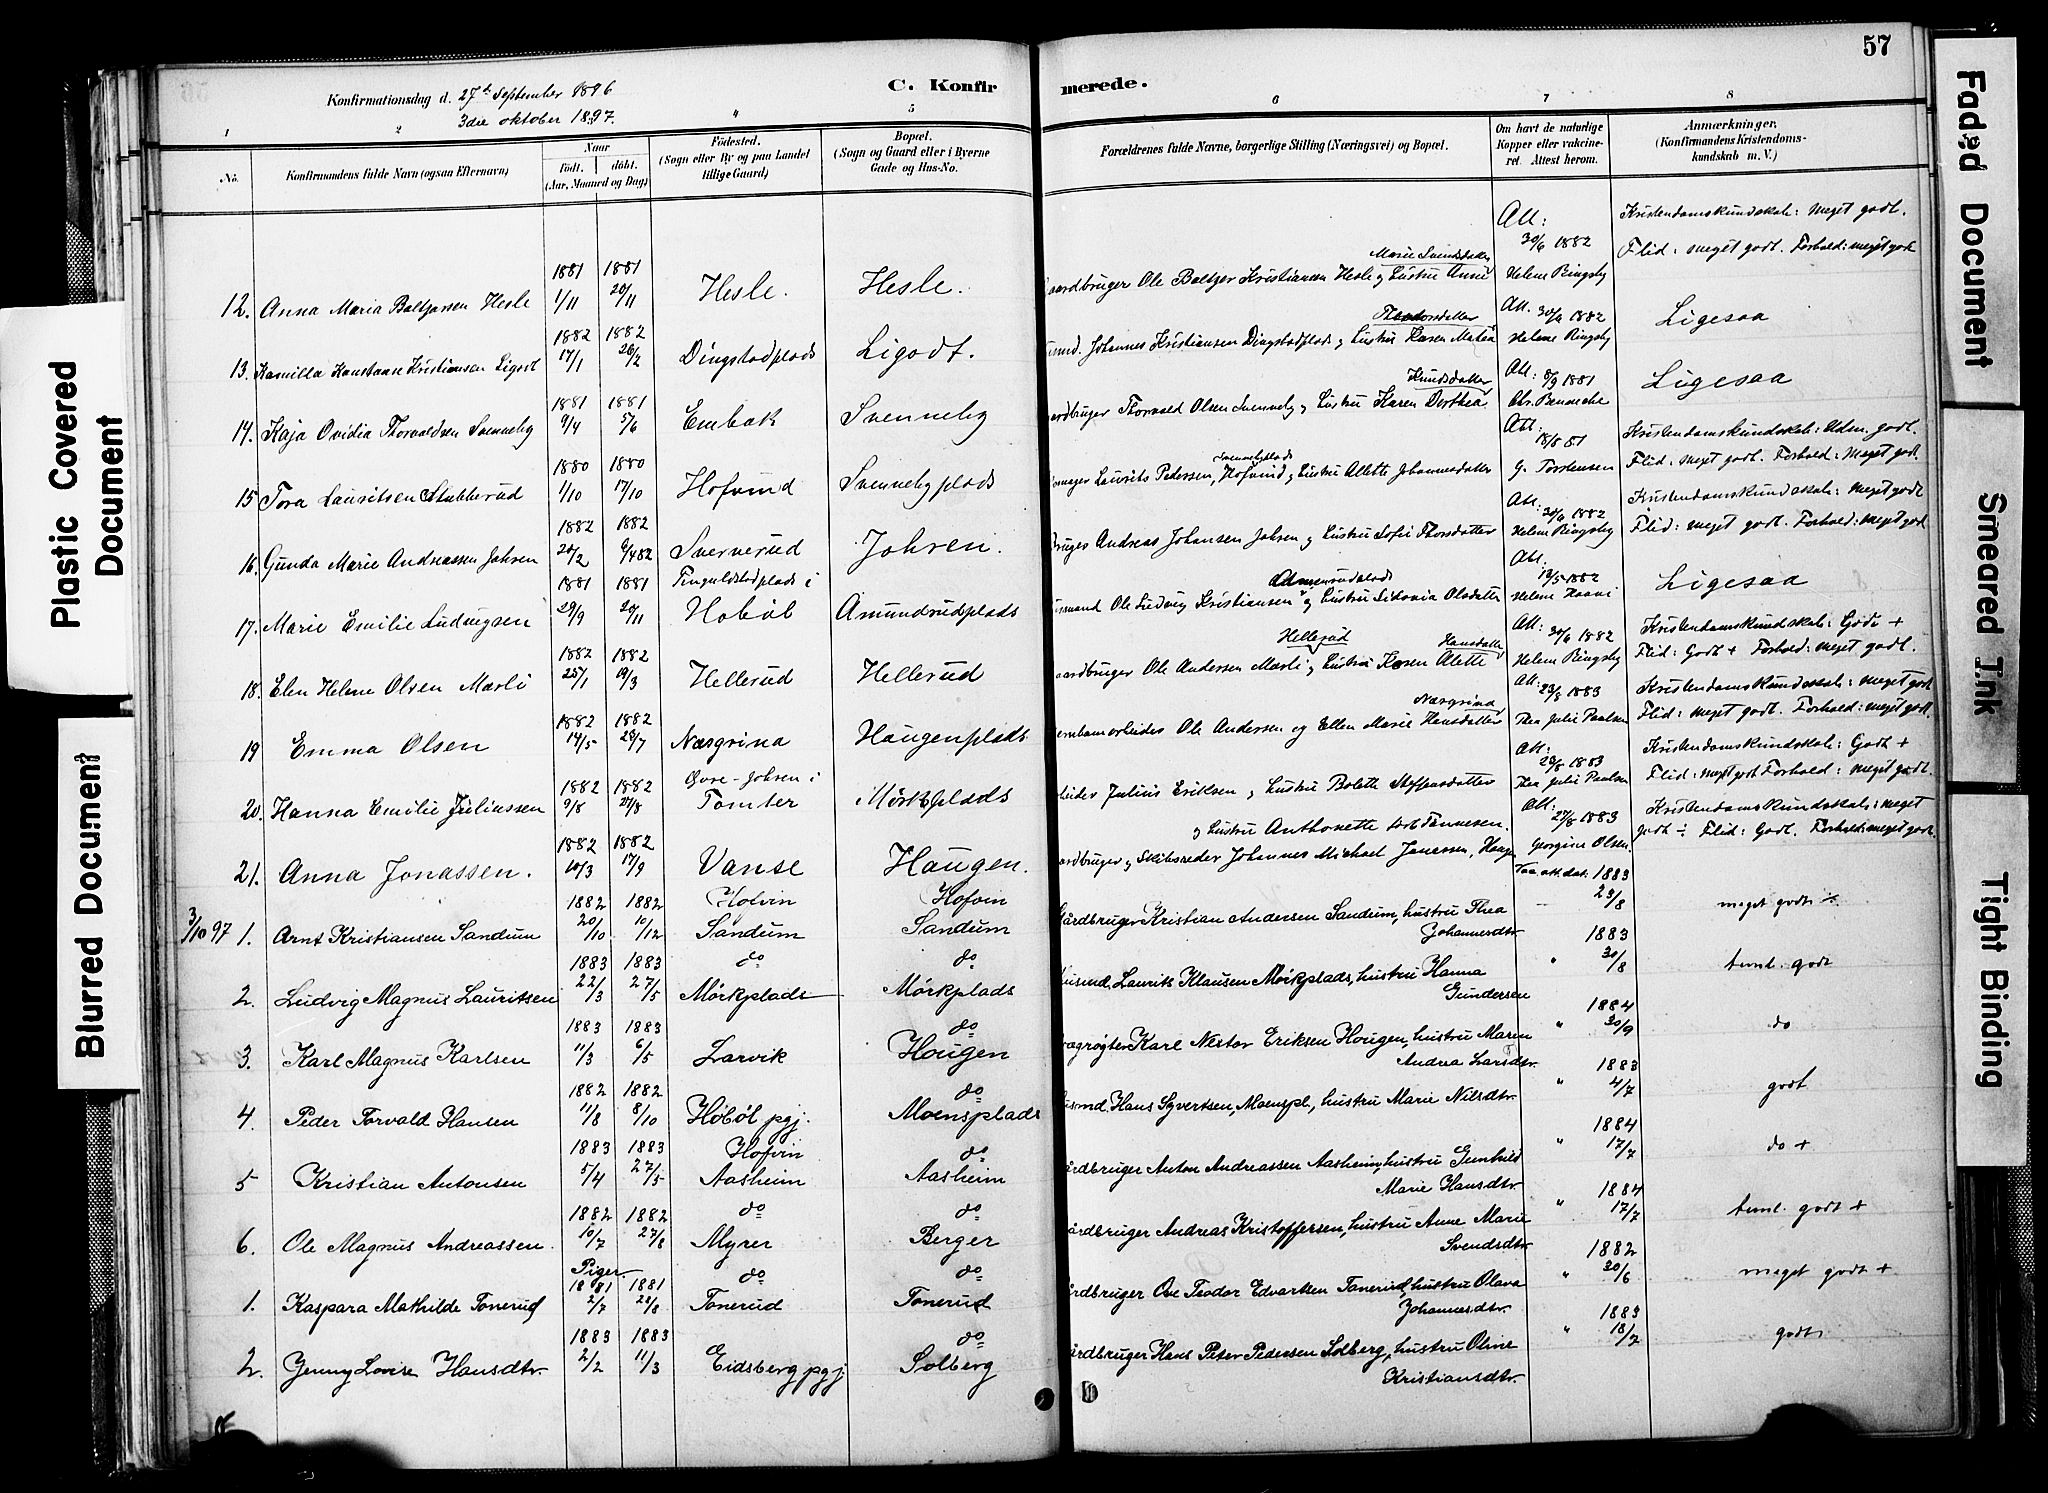 57
C. Konfirmerede.
Konfirmationsdag d. 27de September 1896
3die oktober 1897.
1 2 " 5 6 7 8
No.
Konfirmandens fulde Navn (ogsaa Efternavn)
Naar
født. døbt.
(Aar, Maaned og Dag)
Fødested.
(Sogn eller By og paa Landet
tillige Gaard)
Bopæl.
(Sogn og Gaard eller i Byerne
Gade og Hus-No.
Forældrenes fulde Navne, borgerlige Stilling (Næringsvei) og Bopæl.
Om havt de naturlige
Kopper eller vakcine-
ret. Attest herom.
Anmærkninger.
(Konfirmandens Kristendoms-
kundskab m. V.)
12. Anna Maria Baltzersen Hesle 1881 1/11 1881 20/11 Hesle. Hesle.
Gaardbruger Ole Baltzer Kristiansen Hesle og Hustru Anne Marie Svendsdatter
Att: 30/6 1882 Helene Ringsby
Kristendomskundskab: Meget godt.
Flid: meget godt. Forhold: meget godt
13. Kamilla Konstanse Kristiansen Ligodt 1882 17/1 1882 26/2 Dingstadplads Ligodt.
Husmd. Johannes Kristiansen Dingstadplads og Hustru Karen Matea Theodorsdatter
Att. 30/6 1882 Helene Ringsby
Ligesaa
14. Kaja Ovidia Thorvaldsen Svenneby 1881 9/4 1881 5/6 Embak Svenneby
Gaardbruger Thorvald Olsen Svenneby og Hustru Karen Dorthea Knudsdatter
Att: 8/9 1881
Ligesaa
15 Tora Lauritsen Stubberud 1880 1/10 1880 17/10 Hofvind Svennebyplads
Laurits Pedersen, Svennebyplads Hofvind og Hustru Alette Johannesdatter
Att: 18/8 81 G. Torstensen
Kristendomskundskab: Udm. godt.
Flid: Meget godt. Forhold: Meget godt.
16. Gunda Marie Andreassen Johren 1882 1882 Sververud Johren.
Andreas Johansen Johren og Hustru Sofie Thorsdatter
Att: 30/6 1882 Helene Ringsby
Kristendomskundskab: Meget godt
Flid: meget godt. Forhold: Meget godt
17. Marie Emilie Ludvigsen 1881 29/9 1881 20/11 Tinguldstadplads i Hobøl Amundrudplads
Husmand Ole Ludvig Kristiansen og Hustru Sikonia Olsdatter
Att. 19/5 1882 Helene Haavi
Ligesaa
18. Elen Helene Olsen Mærli 1882 25/1 1882 19/3 Hellerud Hellerud
Gaardbruger Ole Andersen Mærli, Hellerud og Hustru Karen Alette Hansdatter
Att: 30/6 1882 Helene Ringsby
Kristendomskundskab: Godt +
Flid: Godt + Forhold: Meget godt.
19 Emma Olsen 1882 14/5 1882 23/7 Næsgrina Haugenplads
Jernbanearbeider Ole Andersen og Ellen Marie Hansdatter Næsgrina
Att: 23/8 1883 Thea Julie Paulsen
Kristendomskundskab: meget godt
Flid: Meget godt. Forhold: Meget godt.
20. Hanna Emilie Juliussen 1882 9/8 1882 27/8 Øvre-Johren i Tomter Mørkplads
Arbeider Julius Eriksen og Hustru Bolette Steffensdatter
Att: 23/8 1883 Thea Julie Paulsen
Kristendomskundskab: Godt +
Flid: Meget godt Forhold: Meget godt.
21. Anna Jonassen. 1882 10/3 1882 17/9 Vanse Haugen.
Gaardbruger og Skibsreder Johannes Michael Jonassen, Haugen
og Hustru Anthonette født Tønnesen.
Att: 27/8 1883 Georgine Olsen.
Kristendomskundskab: Meget
godt ÷ Flid: Godt. Forhold: Meget godt
3/10 97 1. Arnt Kristiansen Sandum 1882 20/10 1882 10/12 Hofvin Sandum Hofvin Sandum
Gårdbruger Kristian Andersen Sandum, hustru Thea
Johannesdtr. 1883 23/8 meget godt ÷
2. Ludvig Magnus Lauritsen 1883 22/3 1883 27/5 do Mørkplads do Mørkplads
Husmd. Laurits Klausen Mørkplads, hustru Hanna
Gundersen " 1883 30/8 teml. godt
3. Karl Magnus Karlsen 1883 11/3 1883 6/5 Larvik do Hougen
Karl Nestor Eriksen Hougen, hustru Maren
Andrea Larsdtr. " 1884 30/9 do
4. Peder Torvald Hansen 1882 11/8 1882 8/10 Høbøl pgj. do Moensplads
Husmd. Hans Syvertsen, Moenspl., hustru Marie Nilsdtr. " 1883 4/7 godt
5 Kristian Antonsen 1883 5/4 1883 27/5 Hofvin Aasheim do Aasheim
Gårdbruger Anton Andreassen Aasheim, hustru Gunhild
Marie Hansdtr. " 1884 17/7 do +
6. Ole Magnus Andreassen. 1882 10/7 1882 27/8 do Myrer do Berger
Gårdbruger Andreas Kristoffersen, hustru Anne Marie
Svendsdtr. " 1884 17/7 temt. godt +
Piger.
1. Kaspara Mathilde Tonerud 1881 2/7 1881 do Tonerud do Tonerud
Gårdbruger Ove Teodor Edvartsen Tonerud, hustru Olava
Johannesdtr. " 1882 30/6 meget godt +
2. Jenny Lovise Hansdtr. 1883 2/2 1883 11/3 Eidsberg pgj. do Solberg
Gårdbruger Hans Peter Pedersen Solberg, hustru Oline
Kristiansdtr. " 1883 18/7 godt
Plastic Covered
Document
Blurred Document
Faded Document
Smeared Ink
Tight Binding